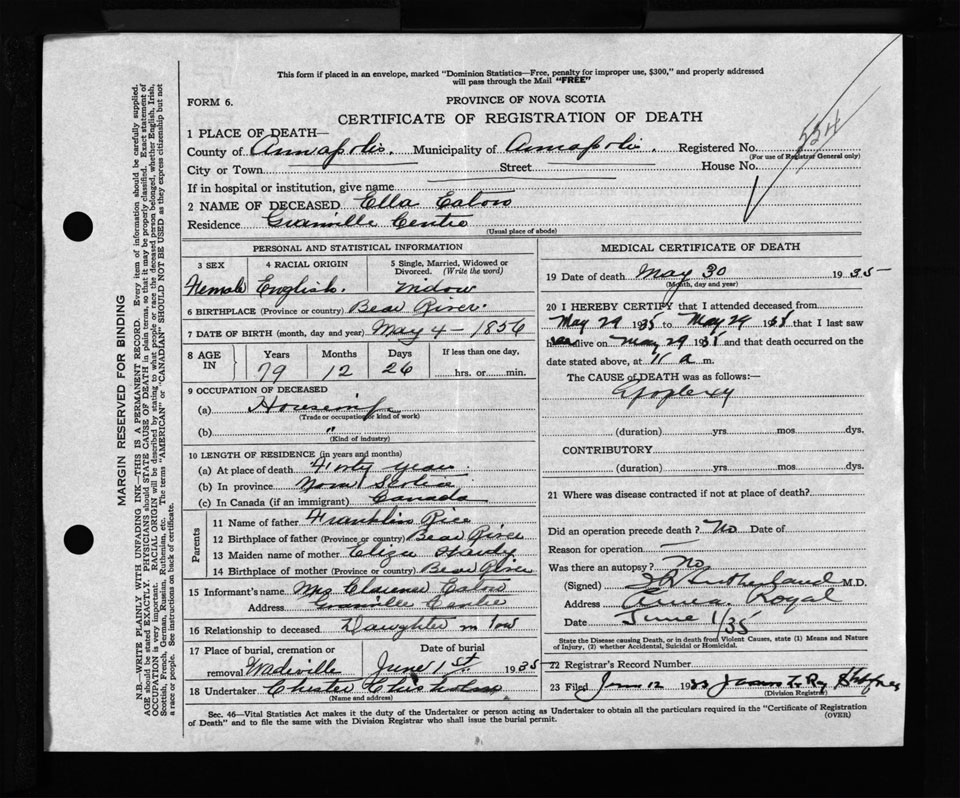 This form if placed in an envelope, marked "Dominion Statistics—Free, penalty for improper use, $300," and properly addressed
will pass through the Mail "FREE"
FORM 6.
PROVINCE OF NOVA SCOTIA
CERTIFICATE OF REGISTRATION OF DEATH
524
1 PLACE OF DEATH—
County of Annapolis. Municipality of Annapolis. Registered No.
(For use of Registrar General only)
City or Town Street House No.
If in hospital or institution, give name
2 NAME OF DECEASED Ella Eaton
Residence Granville Centre
(Usual place of abode)
PERSONAL AND STATISTICAL INFORMATION
3 SEX
Female
4 RACIAL ORIGIN
English.
5 Single, Married, Widowed or
Divorced. (Write the word)
Widow
6 BIRTHPLACE (Province or country) Bear River.
7 DATE OF BIRTH (month, day and year) May 4 - 1856
8 AGE IN
Years Months Days If less than one day.
79 12 26 hrs. or min.
9 OCCUPATION OF DECEASED
(a)
(Trade or occupation or kind of work)
(b) "
(Kind of industry)
10 LENGTH OF RESIDENCE (in years and months)
(a) At place of death years.
(b) In province Nova Scotia
(c) In Canada (if an immigrant) Canada
Parents
11 Name of father Franklin Rice
12 Birthplace of father (Province or Country) Bear River
13 Maiden name of mother Eliza Hardy
14 Birthplace of mother (Province or Country) Bear River
15 Informant's name Mrs Clarence Eaton
Address Granville Centre
16 Relationship to deceased Daughter in law
17 Place of burial, cremation or
removal
Date of burial
June 1st 1935
18 Undertaker Chester Chisholm
(Name and address)
MEDICAL CERTIFICATE OF DEATH
19 Date of death May 30 1935
(Month, day and year)
20 I HEREBY CERTIFY that I attended deceased from
May 29 1935 to May 29 1935 that I last saw
alive on May 29 1935 and that death occurred on the
date stated above, at 11 a m.
The CAUSE of DEATH was as follows:—
Apoplexy
(duration) yrs. mos. dys.
CONTRIBUTORY
(duration) yrs. mos. dys.
21 Where was disease contracted if not at place of death?
Did an operation precede death? No Date of
Reason for operation —
Was there an autopsy? No
(Signed) Sutherland M.D.
Address Anna. Royal
Date June 1/35
State the Disease causing Death, or in death from Violent Causes, state (1) Means and Nature
of Injury, (2) whether Accidental, Suicidal or Homicidal.
22 Registrar's Record Number
23 Filed June 12 193
(Division Registrar)
Sec. 46—Vital Statistics Act makes it the duty of the Undertaker or person acting as Undertaker to obtain all the particulars required in the "Certificate of Registration
of Death" and to file the same with the Division Registrar who shall issue the burial permit. (OVER)
MARGIN RESERVED FOR BINDING
N.B.—WRITE PLAINLY WITH UNFADING INK—THIS IS A PERMANENT RECORD. Every item of information should be carefully supplied.
AGE should be stated EXACTLY. PHYSICIANS should STATE CAUSE OF DEATH in plain terms, so that it may be properly classified. Exact statement of
OCCUPATION is very important. RACIAL ORIGIN will be described by stating to what people or race the deceased person belonged, whether English, Irish,
Scottish, French, German, Russian, Ruthenian, etc. The terms "AMERICAN" or "CANADIAN" SHOULD NOT BE USED as they express citizenship but not
a race or people. See instructions on back of certificate.